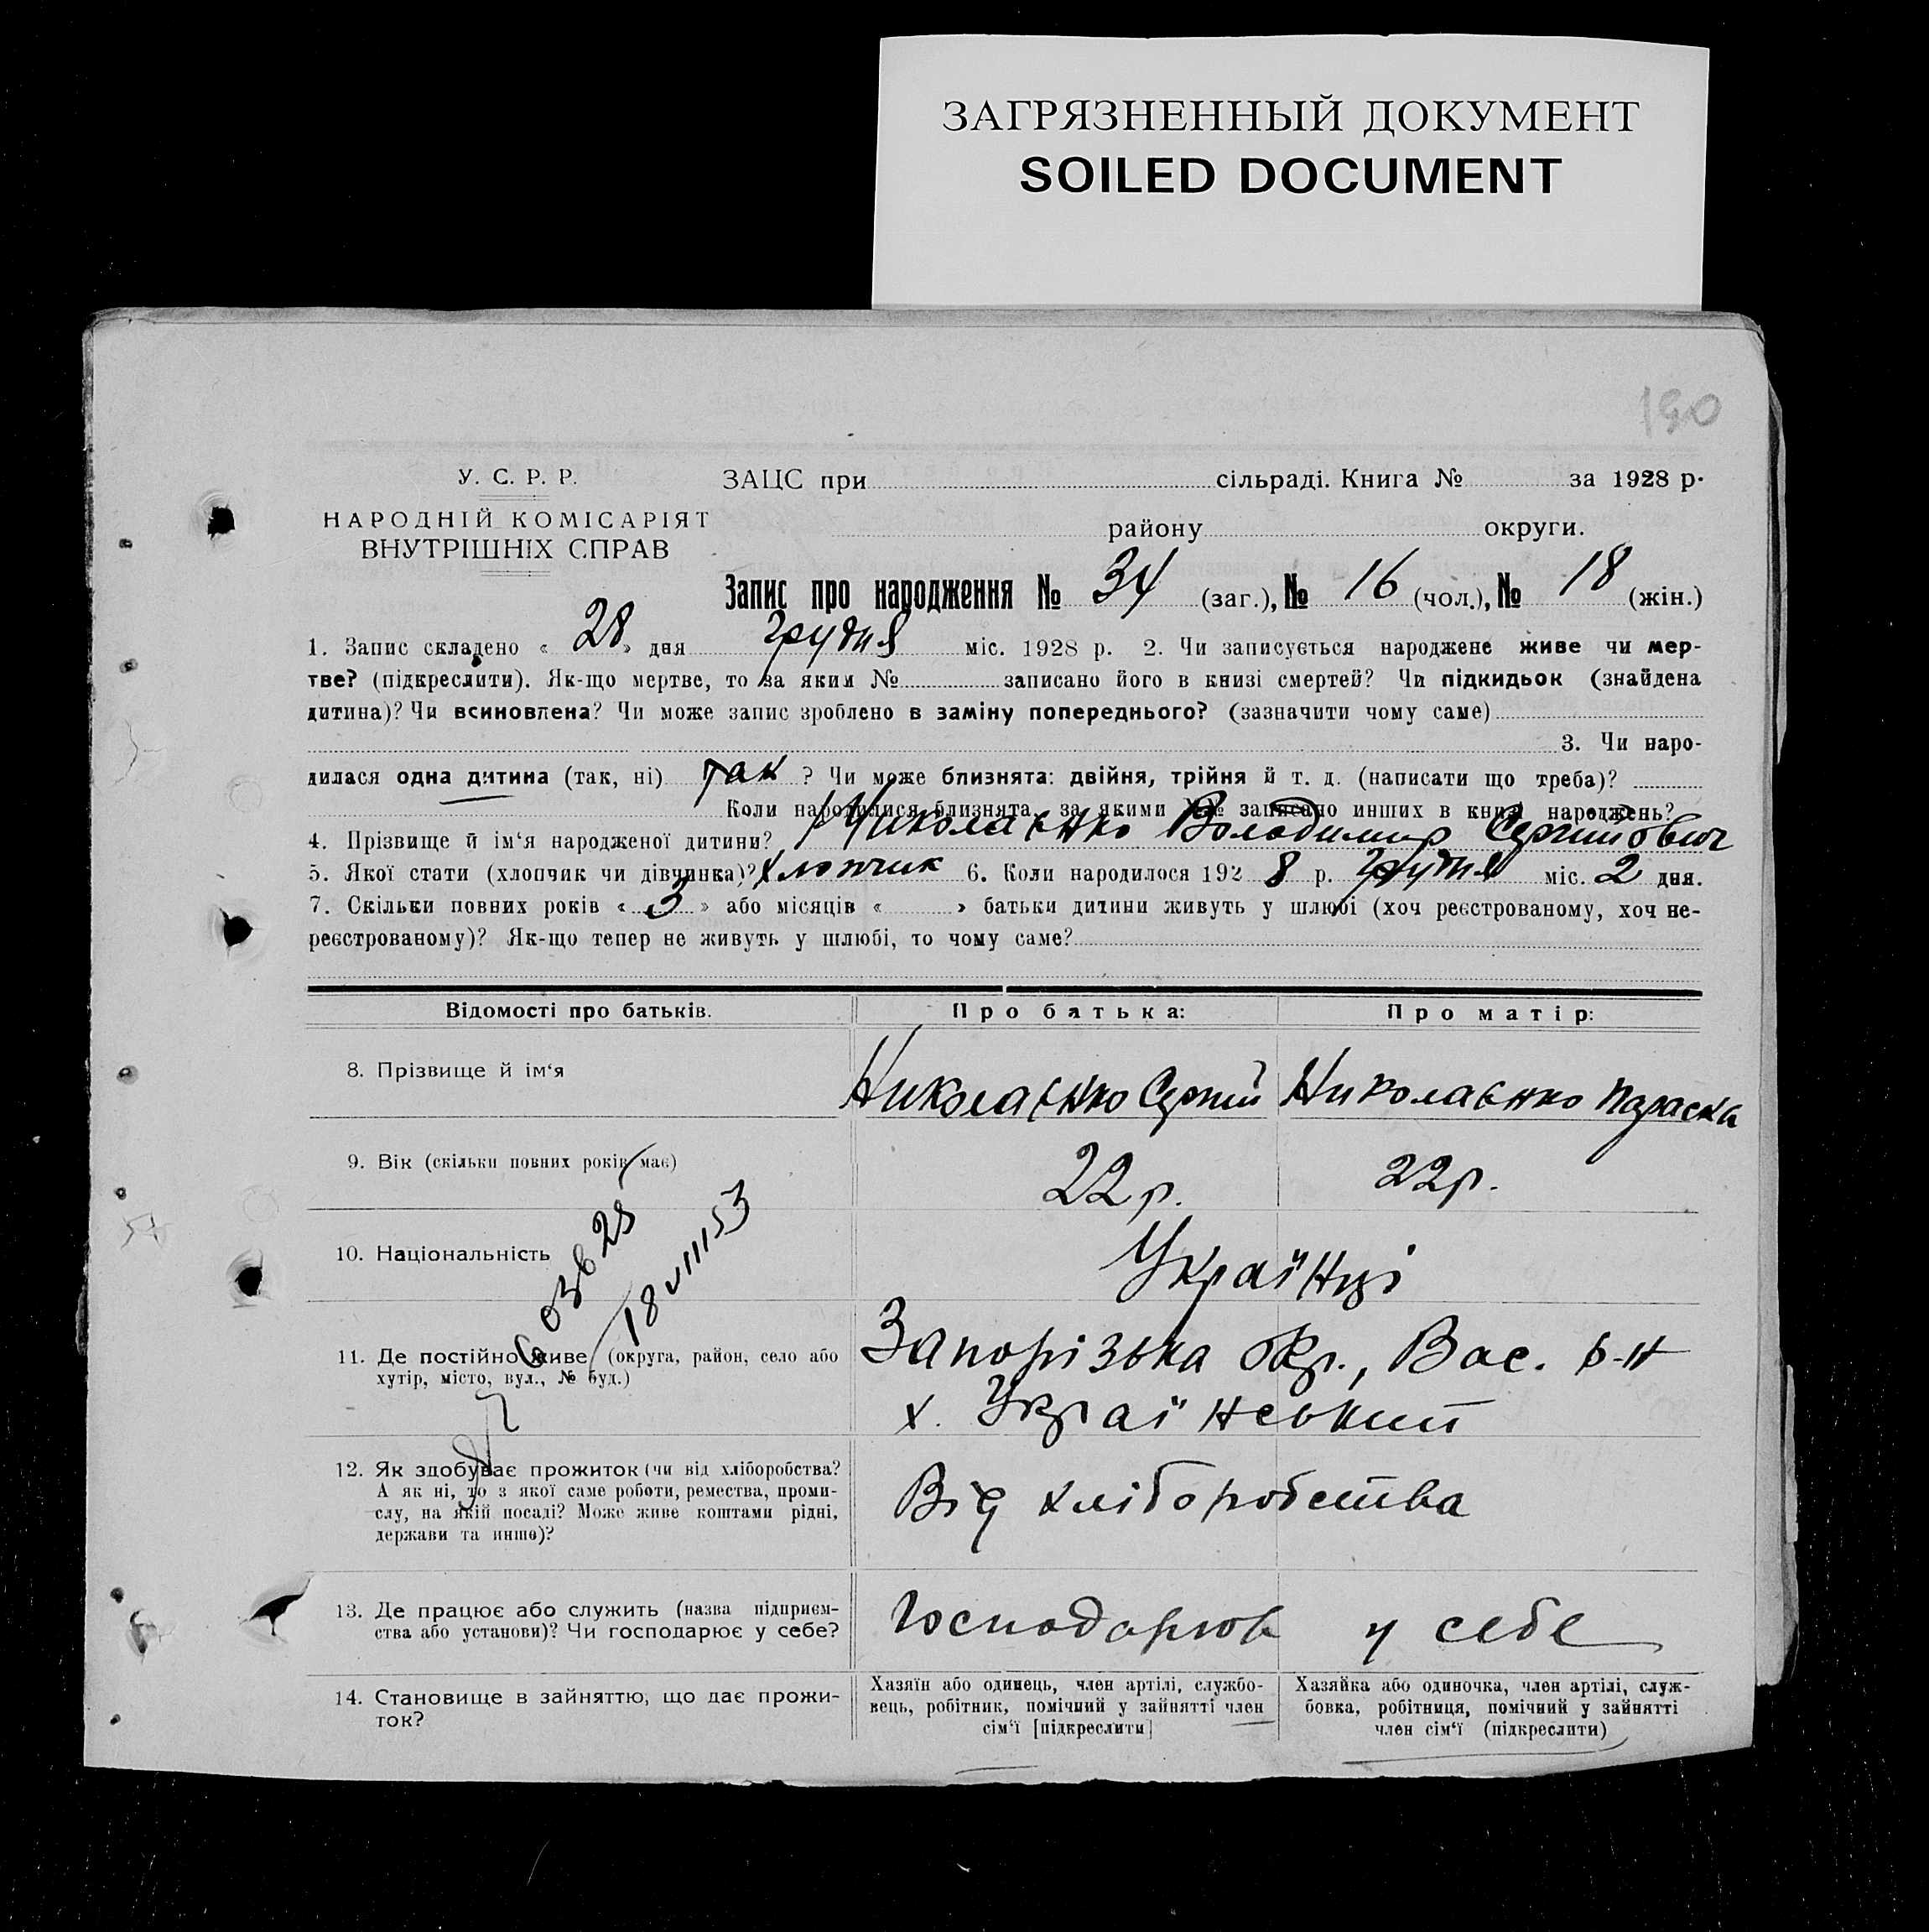 ЗАГРЯЗНЕННЫЙ ДОКУМЕНТ
SOILED DOCUMENT
190
У. С. Р. Р.
НАРОДНІЙ КОМІСАРІЯТ
ВНУТРІШНІХ СПРАВ
ЗАЦС при сільраді. Книга № за 1928 р.
району округи.
Запис про народження № 34 (заг.), № 16 (чол.), № 18 (жін.)
1. Запис складено « 28 » дня грудня міс. 1928 р. 2. Чи записується народжене живе чи мер-
тве? (підкреслити). Як-що мертве, то за яким № записано його в книзі смертей? Чи підкидьок (знайдена
дитина)? Чи всиновлена? Чи може запис зроблено в заміну попереднього? (зазначити чому саме)
3. Чи наро-
дилася одна дитина (так, ні) так ? Чи може близнята: двійня, трійня й т. д. (написати що треба)?
Коли народилися близнята, за якими №№ записано инших в книзі народжень?
4. Прізвище й ім‘я народженої дитини? Николаєнко Володимир Сергийович
5. Якої стати (хлопчик чи дівчинка)? хлопчик 6. Коли народилося 192 8 р. грудня міс. 2 дня.
7. Скільки повних років « 3 » або місяців « » батьки дитини живуть у шлюбі (хоч реєстрованому, хоч не-
реєстрованому)? Як-що тепер не живуть у шлюбі, то чому саме?
Відомості про батьків. Про батька: Про матір:
8. Прізвище й ім‘я Николаєнко Сергий Николаєнко Параска
9. Вік (скільки повних років має) 22 р. 22 р.
10. Національність Українці
11. Де постійно живе (округа, район, село або
хутір, місто, вул., № буд.)
Запорізька окр., Вас. р-н
х. Український
18 VIII 53
12. Як здобуває прожиток (чи від хліборобства?
А як ні, то з якої саме роботи, ремества, проми-
слу, на якій посаді? Може живе коштами рідні,
держави та инше)?
Від хліборобства
13. Де працює або служить (назва підприєм-
ства або установи)? Чи господарює у себе?
Господарюв у себе
14. Становище в зайняттю, що дає прожи-
ток?
Хазяїн або одинець, член артілі, службо-
вець, робітник, помічний у зайнятті член
сім‘ї [підкреслити]
Хазяйка або одиночка, член артілі, служ-
бовка, робітниця, помічний у зайнятті
член сім‘ї (підкреслити)